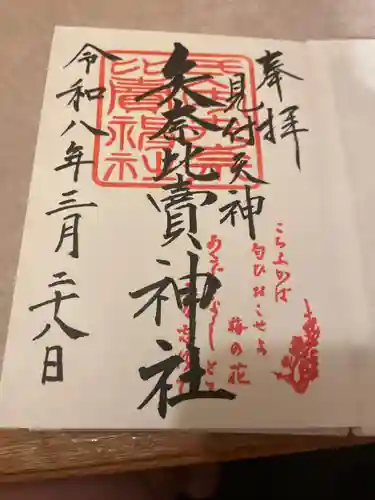 奉拝
見付天神
矢奈比賣神社
令和八年三月二十八日
こちふかば
匂ひおこせよ
梅の花